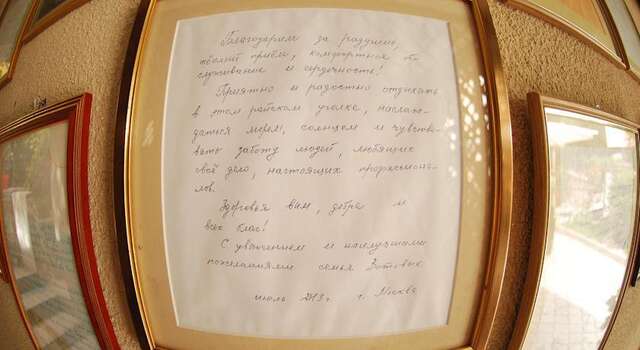 Благодарим за радушие,
тёплый приём, комфортное об-
служивание и сердечность!
Приятно и радостно отдыхать
в этом райском уголке, наслаж-
даться морем, солнцем и чувство-
вать заботу людей, любящих
своё дело, настоящих профессиона-
лов.
Здоровья вам, добра и
всех благ!
С уважением и наилучшими
пожеланиями семья Зотовых
июль 2013 г. г. Москва